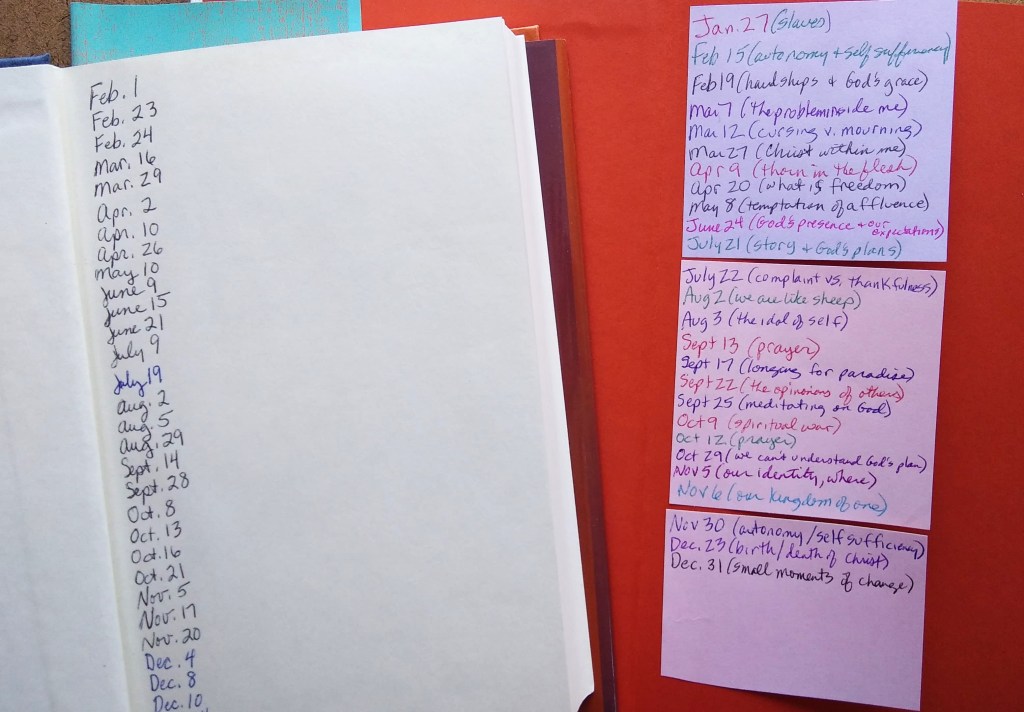 Feb. 1
Feb. 23
Feb. 24
Mar. 16
Mar. 29
Apr. 2
Apr. 10
Apr. 26
May 10
June 9
June 15
June 21
July 9
July 19
Aug. 2
Aug. 5
Aug. 29
Sept. 14
Sept. 28
Oct. 8
Oct. 13
Oct. 16
Oct. 21
Nov. 5
Nov. 17
Nov. 20
Dec. 4
Dec. 8
Dec. 10
Jan. 27 (slaves)
Feb 15 (autonomy + self sufficiency)
Feb 19 (hardships & God's grace)
Mar 7 (the problem inside me)
Mar 12 (cursing v. mourning)
Mar 27 (Christ within me)
Apr 9 (thorn in the flesh)
Apr 20 (what is freedom)
May 8 (temptation of affluence)
June 24 (God's presence + our expectations)
July 21 (story & God's plans)
July 22 (complaint vs. thankfulness)
Aug 2 (we are like sheep)
Aug 3 (the idol of self)
Sept 13 (prayer)
Sept 17 (longing for paradise)
Sept 22 (the opinions of others)
Sept 25 (meditating on God)
Oct 9 (spiritual war)
Oct 12 (prayer)
Oct 29 (we can't understand God's plan)
Nov 5 (our identity, where)
Nov 6 (our kingdom of one)
Nov 30 (autonomy/self sufficiency)
Dec. 23 (birth/death of Christ)
Dec. 31 (small moments of change)